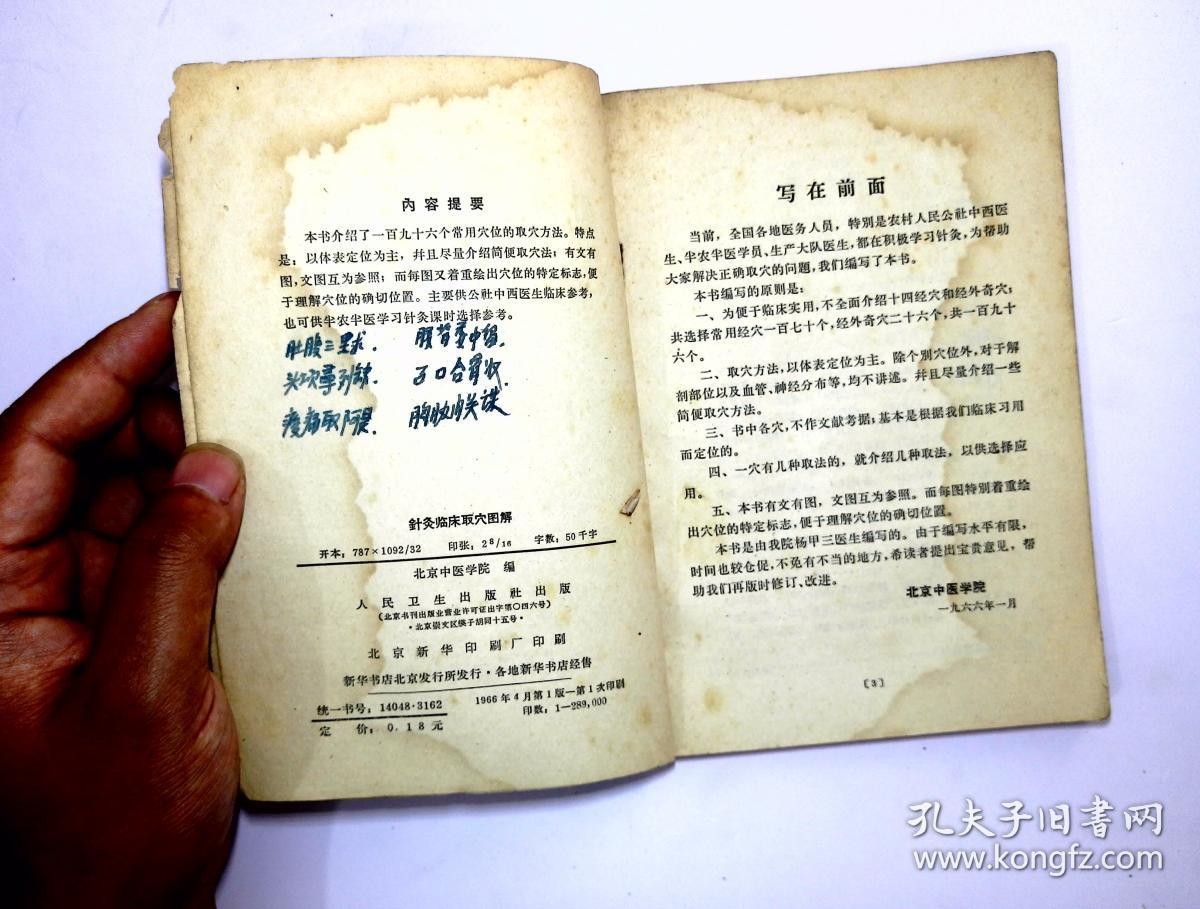 內容提要
本书介绍了一百九十六个常用穴位的取穴方法。特点
是：以体表定位为主，幷且尽量介绍简便取穴法；有文有
图，文图互为参照；而每图又着重绘出穴位的特定标志，便
于理解穴位的确切位置。主要供公社中西医生临床参考，
也可供半农半医学习针灸课时选择参考。
肚腹三里求． 腰背委中
头项寻列缺． 口合
疼痛取阿是． 胸
針灸临床取穴图解
开本：787×1092/32 印张：2 8/16 字数：50千字
北京中医学院 编
人民卫生出版社出版
（北京书刊出版业营业许可证出字第〇四六号）
·北京崇文区𬃊子胡同十五号·
北京新华印刷厂印刷
新华书店北京发行所发行·各地新华书店经售
统一书号：14048·3162
1966年4月第1版—第1次印刷
定 价：0.18元
印数：1—289,000
写在前面
当前，全国各地医务人员，特别是农村人民公社中西医
生、半农半医学员、生产大队医生，都在积极学习针灸，为帮助
大家解决正确取穴的问题，我们编写了本书。
本书编写的原则是：
一、为便于临床实用，不全面介绍十四经穴和经外奇穴；
共选择常用经穴一百七十个，经外奇穴二十六个，共一百九十
六个。
二、取穴方法，以体表定位为主。除个别穴位外，对于解
剖部位以及血管、神经分布等，均不讲述。幷且尽量介绍一些
简便取穴方法。
三、书中各穴，不作文献考据；基本是根据我们临床习用
而定位的。
四、一穴有几种取法的，就介绍几种取法，以供选择应
用。
五、本书有文有图，文图互为参照。而每图特别着重绘
出穴位的特定标志，便于理解穴位的确切位置。
本书是由我院杨甲三医生编写的。由于编写水平有限，
时间也较仓促，不免有不当的地方，希读者提出宝贵意见，帮
助我们再版时修订、改进。
北京中医学院
一九六六年一月
〔3〕
孔夫子旧书网
www.kongfz.com